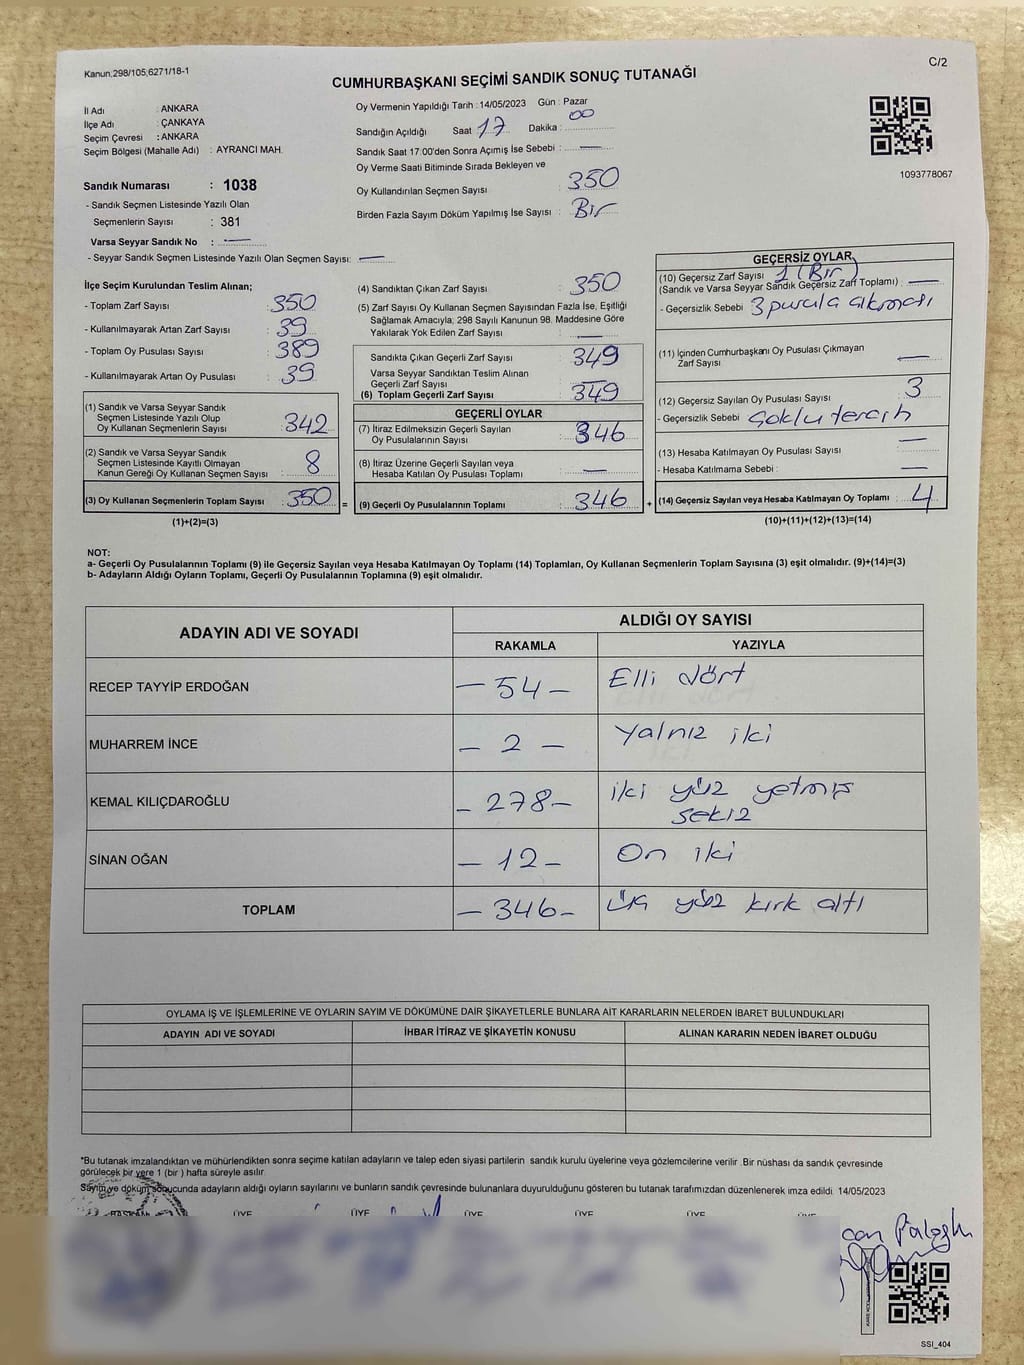 Kanun;298/105;6271/18-1
C/2
CUMHURBAŞKANI SEÇİMİ SANDIK SONUÇ TUTANAĞI
İl Adı : ANKARA
İlçe Adı : ÇANKAYA
Seçim Çevresi : ANKARA
Seçim Bölgesi (Mahalle Adı) : AYRANCI MAH.
Sandık Numarası : 1038
- Sandık Seçmen Listesinde Yazılı Olan
Seçmenlerin Sayısı : 381
Varsa Seyyar Sandık No : —
- Seyyar Sandık Seçmen Listesinde Yazılı Olan Seçmen Sayısı: —
Oy Vermenin Yapıldığı Tarih : 14/05/2023 Gün : Pazar
Sandığın Açıldığı Saat 17 Dakika : 00
Sandık Saat 17:00'den Sonra Açımış İse Sebebi : —
Oy Verme Saati Bitiminde Sırada Bekleyen ve
Oy Kullandırılan Seçmen Sayısı : 350
Birden Fazla Sayım Döküm Yapılmış İse Sayısı : Bir
1093778067
İlçe Seçim Kurulundan Teslim Alınan;
- Toplam Zarf Sayısı : 350
- Kullanılmayarak Artan Zarf Sayısı : 39
- Toplam Oy Pusulası Sayısı : 389
- Kullanılmayarak Artan Oy Pusulası : 39
(1) Sandık ve Varsa Seyyar Sandık
Seçmen Listesinde Yazılı Olup
Oy Kullanan Seçmenlerin Sayısı : 342
(2) Sandık ve Varsa Seyyar Sandık
Seçmen Listesinde Kayıtlı Olmayan
Kanun Gereği Oy Kullanan Seçmen Sayısı : 8
(3) Oy Kullanan Seçmenlerin Toplam Sayısı : 350 =
(1)+(2)=(3)
(4) Sandıktan Çıkan Zarf Sayısı : 350
(5) Zarf Sayısı Oy Kullanan Seçmen Sayısından Fazla İse, Eşitliği
Sağlamak Amacıyla; 298 Sayılı Kanunun 98. Maddesine Göre
Yakılarak Yok Edilen Zarf Sayısı : —
Sandıkta Çıkan Geçerli Zarf Sayısı : 349
Varsa Seyyar Sandıktan Teslim Alınan
Geçerli Zarf Sayısı : —
(6) Toplam Geçerli Zarf Sayısı : 349
GEÇERLİ OYLAR
(7) İtiraz Edilmeksizin Geçerli Sayılan
Oy Pusulalarının Sayısı : 346
(8) İtiraz Üzerine Geçerli Sayılan veya
Hesaba Katılan Oy Pusulası Toplamı : —
(9) Geçerli Oy Pusulalarının Toplamı : 346 +
GEÇERSİZ OYLAR
(10) Geçersiz Zarf Sayısı 1 (Bir)
(Sandık ve Varsa Seyyar Sandık Geçersiz Zarf Toplamı) : —
- Geçersizlik Sebebi : 3 pusula çıkması
(11) İçinden Cumhurbaşkanı Oy Pusulası Çıkmayan
Zarf Sayısı : —
(12) Geçersiz Sayılan Oy Pusulası Sayısı : 3
- Geçersizlik Sebebi : Çoklu tercih
(13) Hesaba Katılmayan Oy Pusulası Sayısı : —
- Hesaba Katılmama Sebebi : —
(14) Geçersiz Sayılan veya Hesaba Katılmayan Oy Toplamı : 4
(10)+(11)+(12)+(13)=(14)
NOT:
a- Geçerli Oy Pusulalarının Toplamı (9) ile Geçersiz Sayılan veya Hesaba Katılmayan Oy Toplamı (14) Toplamları, Oy Kullanan Seçmenlerin Toplam Sayısına (3) eşit olmalıdır. (9)+(14)=(3)
b- Adayların Aldığı Oyların Toplamı, Geçerli Oy Pusulalarının Toplamına (9) eşit olmalıdır.
ADAYIN ADI VE SOYADI
ALDIĞI OY SAYISI
RAKAMLA YAZIYLA
RECEP TAYYİP ERDOĞAN — 54 — Elli dört
MUHARREM İNCE — 2 — Yalnız iki
KEMAL KILIÇDAROĞLU — 278 — iki yüz yetmiş
sekiz
SİNAN OĞAN — 12 — On iki
TOPLAM — 346 — üç yüz kırk altı
OYLAMA İŞ VE İŞLEMLERİNE VE OYLARIN SAYIM VE DÖKÜMÜNE DAİR ŞİKAYETLERLE BUNLARA AİT KARARLARIN NELERDEN İBARET BULUNDUKLARI
ADAYIN ADI VE SOYADI İHBAR İTİRAZ VE ŞİKAYETİN KONUSU ALINAN KARARIN NEDEN İBARET OLDUĞU
*Bu tutanak imzalandıktan ve mühürlendikten sonra seçime katılan adayların ve talep eden siyasi partilerin sandık kurulu üyelerine veya gözlemcilerine verilir. Bir nüshası da sandık çevresinde
görülecek bir yere 1 (bir) hafta süreyle asılır.
Sayım ve döküm sonucunda adayların aldığı oyların sayılarını ve bunların sandık çevresinde bulunanlara duyurulduğunu gösteren bu tutanak tarafımızdan düzenlenerek imza edildi 14/05/2023
BAŞKAN ÜYE ÜYE ÜYE ÜYE ÜYE ÜYE
SSI_404